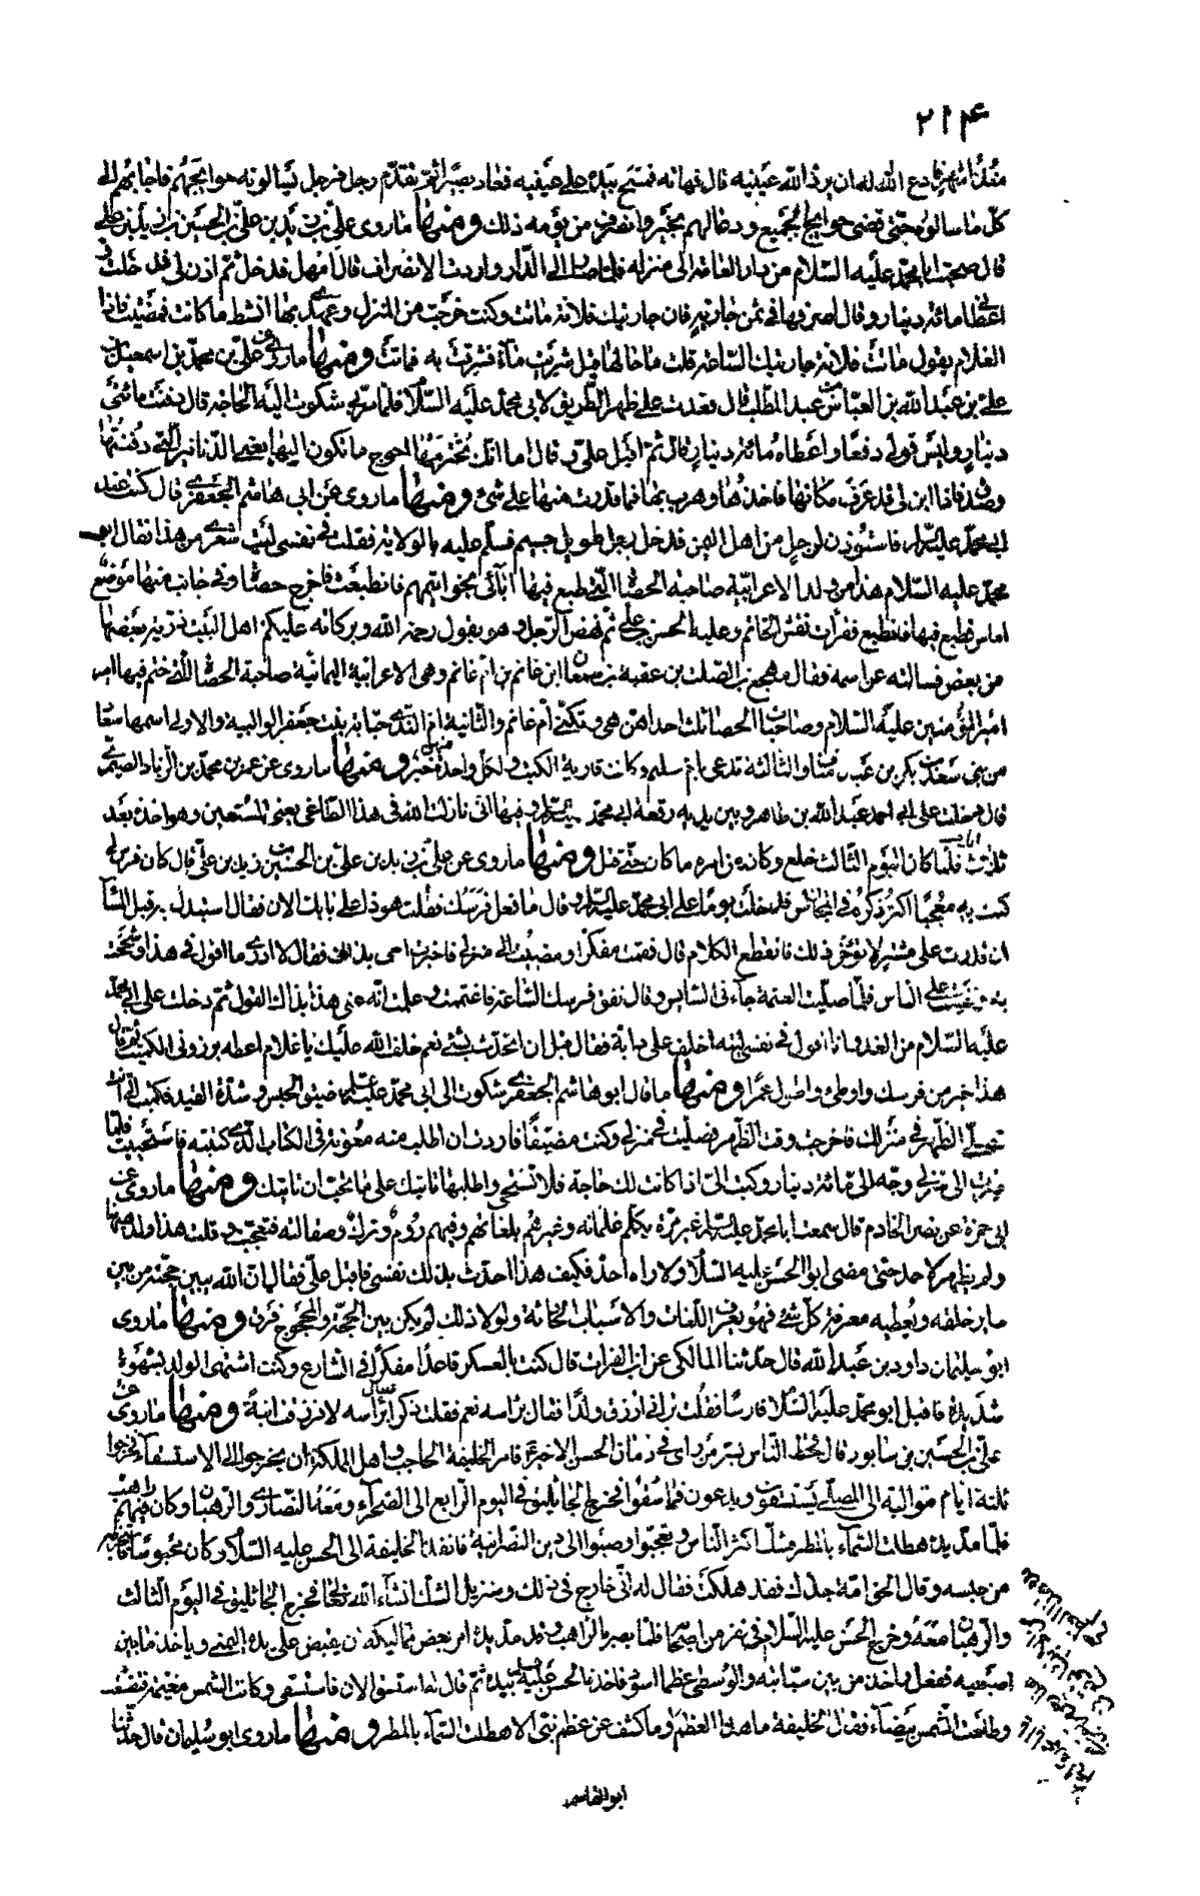 ٢١۴
منذ اشهر فادع الله له ان يرد الله عينيه قال فهاته فمسح بيده على عينيه فعاد بصيرا ثم تقدم رجل فرجل يسالونه حوائجهم فاجابهم الى
كل ما سالوه حتى قضى حوائج الجميع ودعا لهم بخير وانصرف من يومه ذلك ومنها ما روى على بن زيد بن على بن الحسين بن زيد بن على
قال صحبت ابا محمد عليه السلام من دار العامة الى منزله فلما صار الى الدار واردت الانصراف قال امهل فدخل ثم اذن لى فدخلت
فاعطانى مائة دينار وقال اصرفها فى ثمن جارية فان جاريتك فلانة ماتت وكنت خرجت من المنزل وعهدى بها انشط ما كانت فمضيت فاذا
الغلام يقول ماتت فلانة جاريتك الساعة قلت ما حالها قيل شربت ماء فشرقت به فماتت ومنها ما روى عن على بن محمد بن اسمعيل بن
على بن عبد الله بن العباس بن عبد المطلب قال قعدت على ظهر الطريق لابى محمد عليه السلام فلما مر بى شكوت اليه الحاجة قال دفنت مائتى
دينار وليس قولى دفعا واعطاه مائة دينار قال ثم اقبل على وقال اما انك تحرمها احوج ما تكون اليها يعنى الدنانير التى دفنتها
وصدق فاذا ابن لى قد عرف مكانها فاخذها وهرب بها فما قدرت منها على شئ ومنها ما روى عن ابى هاشم الجعفرى قال كنت عند
ابى محمد عليه السلام فاستؤذن لرجل من اهل اليمن فدخل رجل طويل جسيم فسلم عليه بالولاية فقلت فى نفسى ليت شعرى من هذا فقال ابو
محمد عليه السلام هذا من ولد الاعرابية صاحبة الحصا التى تطبع فيها اباَئى بخواتيمهم فانطبعت فاخرج حصاة وفى جانب منها موضع
املس فطبع فيها فانطبع فقرات نقش الخاتم وعليه الحسن بن على ثم نهض الرجل وهو يقول رحمة الله وبركاته عليكم اهل البيت ذرية بعضها
من بعض فسالته عن اسمه فقال مهجع بن الصلت بن عقبة بن سمعان ابن غانم بن ام غانم وهى الاعرابية اليمانية صاحبة الحصا التى ختم فيها
امير المؤمنين عليه السلام وصاحبات الحصا ثلث احداهن هى وتكنى ام غانم والثانية ام الندى حبابة بنت جعفر الوالبية والاولى اسمها سعاد
من بنى سعد بن بكر بن عبد مناة والثالثة تدعى ام سليم وكانت قارية الكتب ولكل واحدة منهن خبر ومنها ما روى عن عمر بن محمد بن الزياد الصيمرى
قال دخلت على ابى احمد عبد الله بن طاهر وبين يديه رقعة ابى محمد عليه السلام وفيها انى نازلت الله فى هذا الطاغى يعنى المستعين وهو اخذه بعد
ثلاث فلما كان اليوم الثالث خلع وكان من امره ما كان حتى قتل ومنها ما روى عن على بن زيد بن على بن الحسين بن زيد بن على قال كان فرس لى
كنت به معجبا اكثر ذكره فى المجالس فدخلت يوما على ابى محمد عليه السلام وقال ما فعل فرسك فقلت هو ذا على بابك الان فقال استبدل به قبل المساء
ان قدرت على مشتر لا تؤخر ذلك فانقطع الكلام قال فقمت مفكرا ومضيت الى منزلى فاخبرت اخى بذلك فقال لا ادرى ما اقول فى هذا وشححت
به ونفست على الناس فلما صليت العتمة جاءنى السايس وقال نفق فرسك الساعة فاغتممت وعلمت انه عنى هذا بذاك القول ثم دخلت على ابى محمد
عليه السلام من الغد وانا اقول فى نفسى ليته اخلف على دابة فقال قبل ان اتحدث بشئ نعم خلف الله عليك يا غلام اعطه برذونى الكميت ثم قال
هذا خير من فرسك واوطئ واطول عمرا ومنها ما قال ابو هاشم الجعفرى شكوت الى ابى محمد عليه السلام ضيق الحبس وشدة القيد فكتب الى انت
تصلى الظهر فى منزلك فاخرجت وقت الظهر فصليت فى منزلى وكنت مضيقا فاردت ان اطلب منه معونة فى الكتاب الذى كتبته فاستحييت فلما
صرت الى منزلى وجه الى مائة دينار وكتب الى اذا كانت لك حاجة فلا تستحى واطلبها تاتيك على ما تحب ان تاتيك ومنها ما روى عن
ابى حمزة عن نصر الخادم قال سمعت ابا محمد عليه السلام غير مرة يكلم غلمانه وغيرهم بلغاتهم وفيهم روم وترك وصقالبة فتعجبت وقلت هذا ولد هيهنا
ولم يظهر لاحد حتى مضى ابو الحسن عليه السلام ولا راه احد فكيف هذا احدث بذلك نفسى فاقبل على فقال ان الله يبين حجته من بين
ساير خلقه ويعطيه معرفة كل شئ فهو يعرف اللغات والاسباب والحادثة ولولا ذلك لم يكن بين الحجة والمحجوج فرق ومنها ما روى
ابو سليمان داود بن عبد الله قال حدثنا المالكى عن ابن الفرات قال كنت بالعسكر قاعدا مفكرا فى الشارع وكنت اشتهى الولد بشهوة
شديدة فاقبل ابو محمد عليه السلام فارسا فقلت ترانى ارزق ولدا فقال براسه نعم فقلت ذكرا فقال براسه لا فرزقت ابنة ومنها ما روى عن
على بن الحسين بن سابور قال قحط الناس بسر من راى فى زمان الحسن الاخير فامر الخليفة الحاجب واهل المملكة ان يخرجوا الى الاستسقاء فخرجوا
ثلثة ايام متوالية الى المصلى يستسقون ويدعون فما سقوا فخرج الجاثليق فى اليوم الرابع الى الصحراء ومعه النصارى والرهبان وكان فيهم راهب
فلما مد يده هطلت السماء بالمطر فشك اكثر الناس وتعجبوا وصبوا الى دين النصرانية فانفذ الخليفة الى الحسن عليه السلام وكان محبوسا فاستخرجه
من حبسه وقال الحق امة جدك فقد هلكت فقال له انى خارج فى ذلك ومزيل الشك انشاء الله تعالى فخرج الجاثليق فى اليوم الثالث
والرهبان معه وخرج الحسن عليه السلام فى نفر من اصحابه فلما بصر بالراهب وقد مد يده امر بعض مماليكه ان يقبض على يده اليمنى وياخذ ما بين
اصبعيه ففعل واخذ من بين سبابته والوسطى عظما اسود فاخذه الحسن عليه السلام بيده ثم قال له استسق الان فاستسقى وكانت الشمس مغيمة فتقشعت
وطلعت الشمس بيضاء فقال الخليفة ما هذا العظم وما كشف عن عظم نبى الا هطلت السماء بالمطر ومنها ما روى ابو سليمان قال حدثنا
ابو القاسم